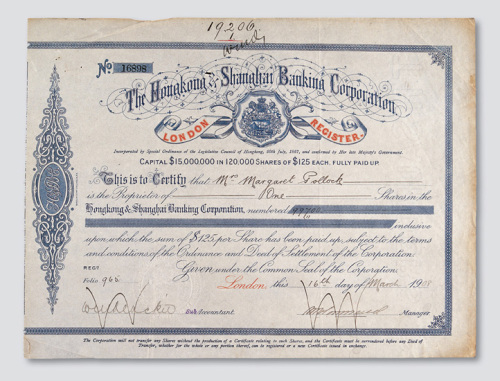 19206
No 16898
The Hongkong & Shanghai Banking Corporation
LONDON REGISTER.
Incorporated by Special Ordinance of the Legislative Council of Hongkong, 20th July, 1867, and confirmed by Her late Majesty's Government.
CAPITAL $15,000,000 IN 120,000 SHARES OF $125 EACH. FULLY PAID UP.
This is to Certify that Mrs Margaret Pollock
is the Proprietor of One Shares in the
Hongkong & Shanghai Banking Corporation, numbered
inclusive
upon which the sum of $125 per Share has been paid up, subject to the terms
and conditions of the Ordinance and Deed of Settlement of the Corporation.
REGR
Given under the Common Seal of the Corporation.
Folio 968
London, this 16th day of March 1908
Accountant
Manager
The Corporation will not transfer any Shares without the production of a Certificate relating to such Shares, and the Certificate must be surrendered before any Deed of
Transfer, whether for the whole or any portion thereof, can be registered or a new Certificate issued in exchange.